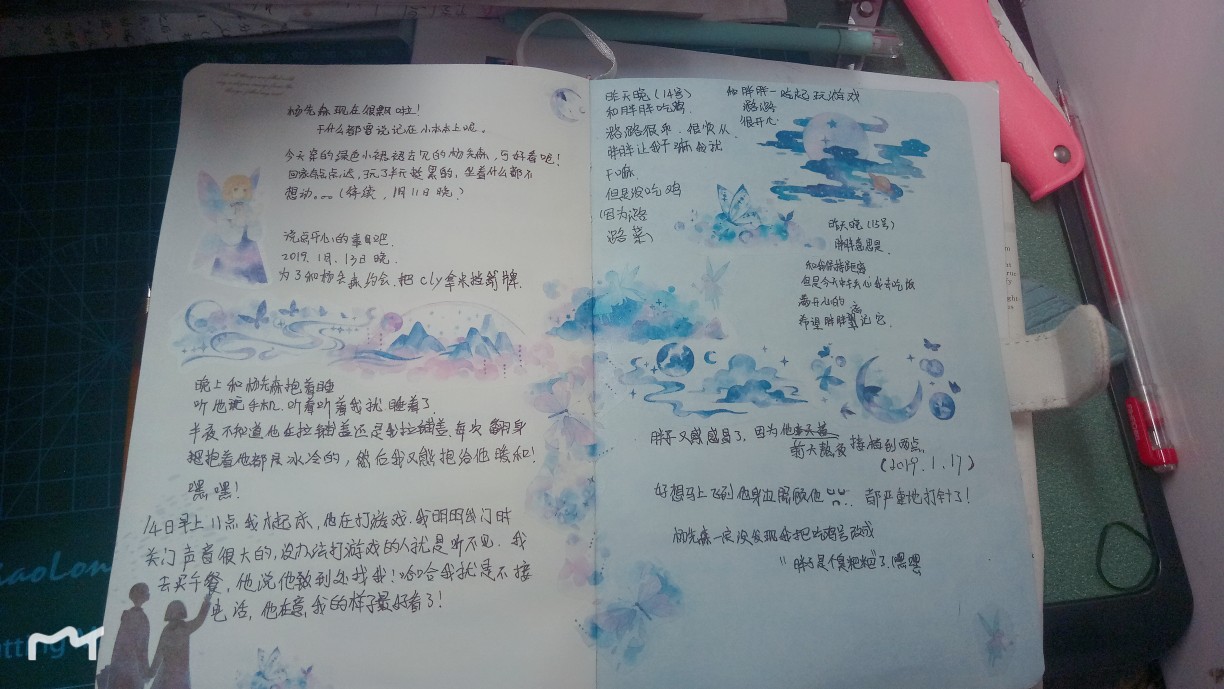 杨先森现在很飘啦！
干什么都要说记在小本本上呢。
今天穿的绿色小裙裙去见的杨先森，可好看呢！
回家有点点迟，玩了半天挺累的，坐着什么都不
想动。。。(续，1月11日晚)
流点开心的事目吧.
2019.1月.13日晚.
为了和杨先森约会.把cly拿来挡箭牌.
晚上和杨先森抱着睡
听他玩手机.听着听着我就睡着了.
半夜不知道他在拉铺盖还是我拉铺盖.每次翻身
想抱着他都是冰冷的，然后我又熊抱给他暖和！
嘿嘿！
14日早上11点我才起床，他在打游戏.我明明出门时
关门声音很大的，没办法打游戏的人就是听不见.我
去买午餐，他说他敢到处找我！哈哈我就是不接
电话，他在意我的样子最好看了！
昨天晚(14号)
和胖胖吃鸡.
路路很乖.很实从
胖胖让我干嘛我就
干嘛.
但是没吃鸡
(因为路
路菜)
和胖胖一吃起玩游戏
路路
很开心
昨天晚(15号)
胖胖意思是.
和我保持距离
但是今天中午关心我去吃饭
蛮开心的
希望胖胖忘记它.
胖子又感感冒了，因为他
前天熬夜接触到两点.
(2019.1.17)
好想马上飞到他身边照顾他 都严重地打针了！
杨先森一辰没发现我把吃鸡号改成
"胖子是个臭粑粑"了.嘿嘿